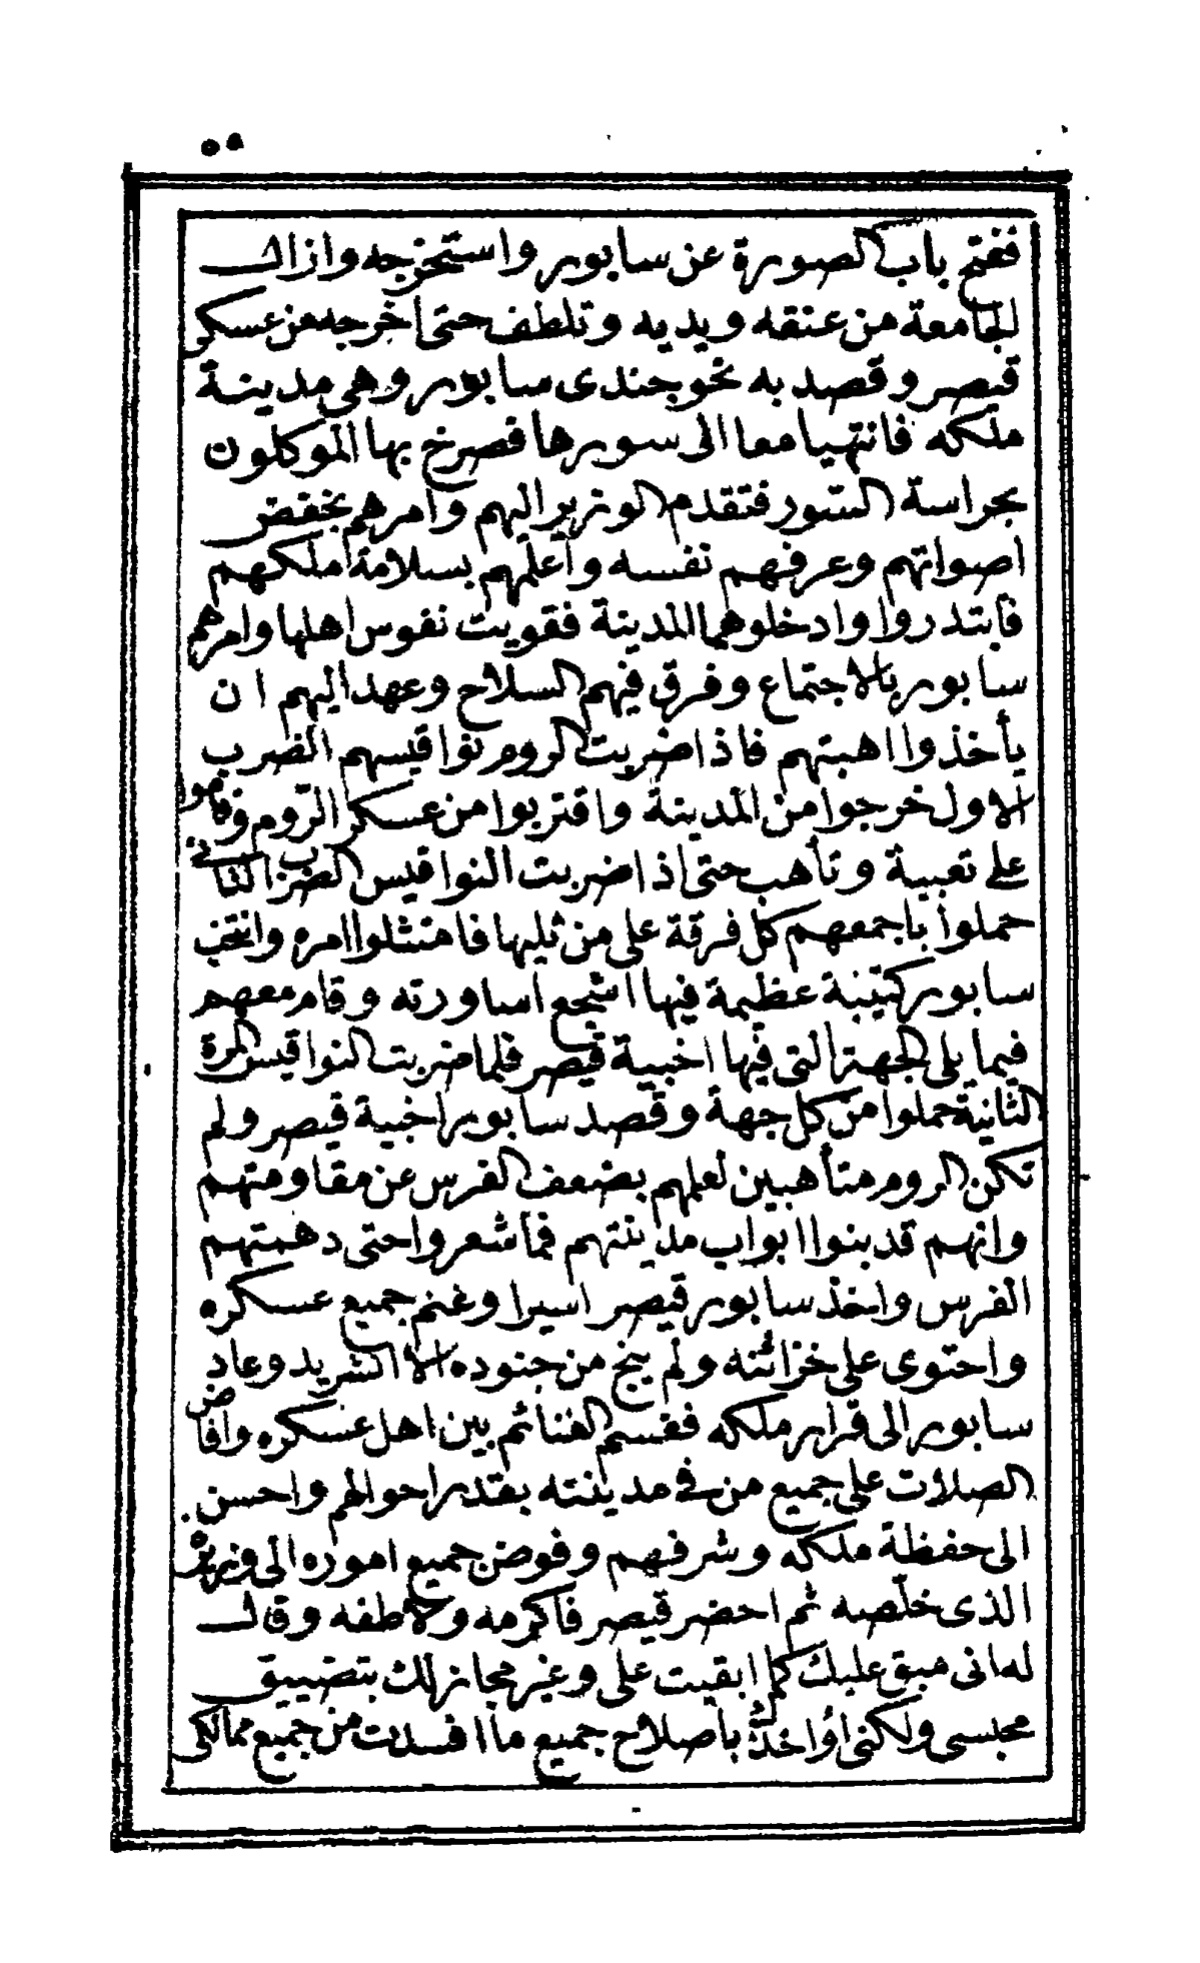 ٥٨
ففتح باب الصورة عن سابور واستخرجه وازال
الجامعة من عنقه ويديه وتلطف حتى اخرجه من عسكر
قيصر وقصد به نحو جندى سابور وهي مدينة
ملكه فانتهيا معا الى سورها فصرخ بها الموكلون
بحراسة السور فتقدم الوزير اليهم وامرهم بخفض
اصواتهم وعرفهم نفسه وأعلمهم بسلامة املكهم
فابتدروا وادخلوهما المدينة فقويت نفوس اهلها وامرهم
سابور بالاجتماع وفرق فيهم السلاح وعهد اليهم ان
يأخذوا اهبتهم فاذا ضربت الروم نواقيسهم الضرب
الاول خرجوا من المدينة واقتربوا من عسكر الروم وقاموا
على تعبية وتأهب حتى اذا ضربت النواقيس الضرب الثاني
حملوا باجمعهم كل فرقة على من تليها فامتثلوا امره وانتخب
سابور كتيبة عظيمة فيها اشجع اساورته وقام معهم
فيما يلى الجهة التى فيها اخبية قيصر فلما ضربت النواقيس المرة
الثانية حملوا من كل جهة وقصد سابور اخبية قيصر ولم
تكن الروم متأهبين لعلمهم بضعف الفرس عن مقاومتهم
وانهم قد بنوا ابواب مدينتهم فما شعروا حتى دهمتهم
الفرس واخذ سابور قيصر اسيرا وغنم جميع عسكره
واحتوى على خزائنه ولم ينج من جنوده الا الشريد وعاد
سابور الى قرار ملكه فقسم الغنائم بين اهل عسكره وافاض
الصلات على جميع من في مدينته بقدر احوالهم واحسن
الى حفظة ملكه وشرفهم وفوض جميع اموره الى وزيره
الذى خلصه ثم احضر قيصر فاكرمه ولاطفه وقال
له انى مبق عليك كما ابقيت على وغير مجازيك بتضييق
مجلسى ولكنى اؤاخذك باصلاح جميع ما افسدت من جميع ممالكى